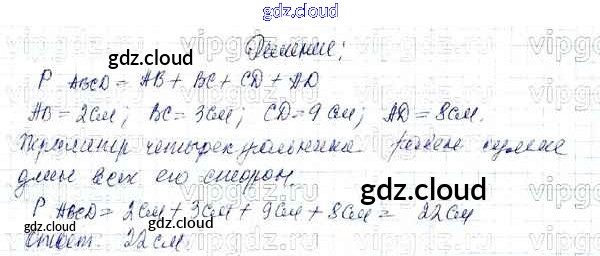 gdz.cloud
Решение:
P ABCD = AB + BC + CD + AD
AB = 2см; BC = 3см; CD = 9см; AD = 8см.
Периметр четырехугольника равен сумме
длин всех его сторон.
P ABCD = 2см + 3см + 9см + 8см = 22см
Ответ: 22см.
gdz.cloud
gdz.cloud
gdz.cloud
gdz.cloud